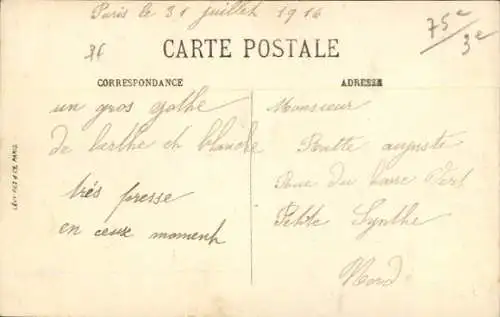 Paris le 31 juillet 1916
75e
3e
36
CARTE POSTALE
CORRESPONDANCE
ADRESSE
un gros
de barthe et blanche
très presse
en ceux moment
Monsieur
auguste
Rue du
Petite Synthe
Nord